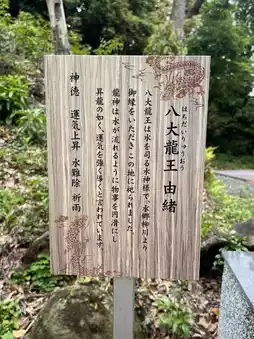 はちだいりゅうおう
八大龍王 由緒
八大龍王は水を司る水神様で、水郷柳川より
御縁をいただきこの地に祀られました。
龍神は水が流れるように物事を円滑にし
昇龍の如く、運気を強く導くと言われています。
神徳 運気上昇 水難除 祈雨